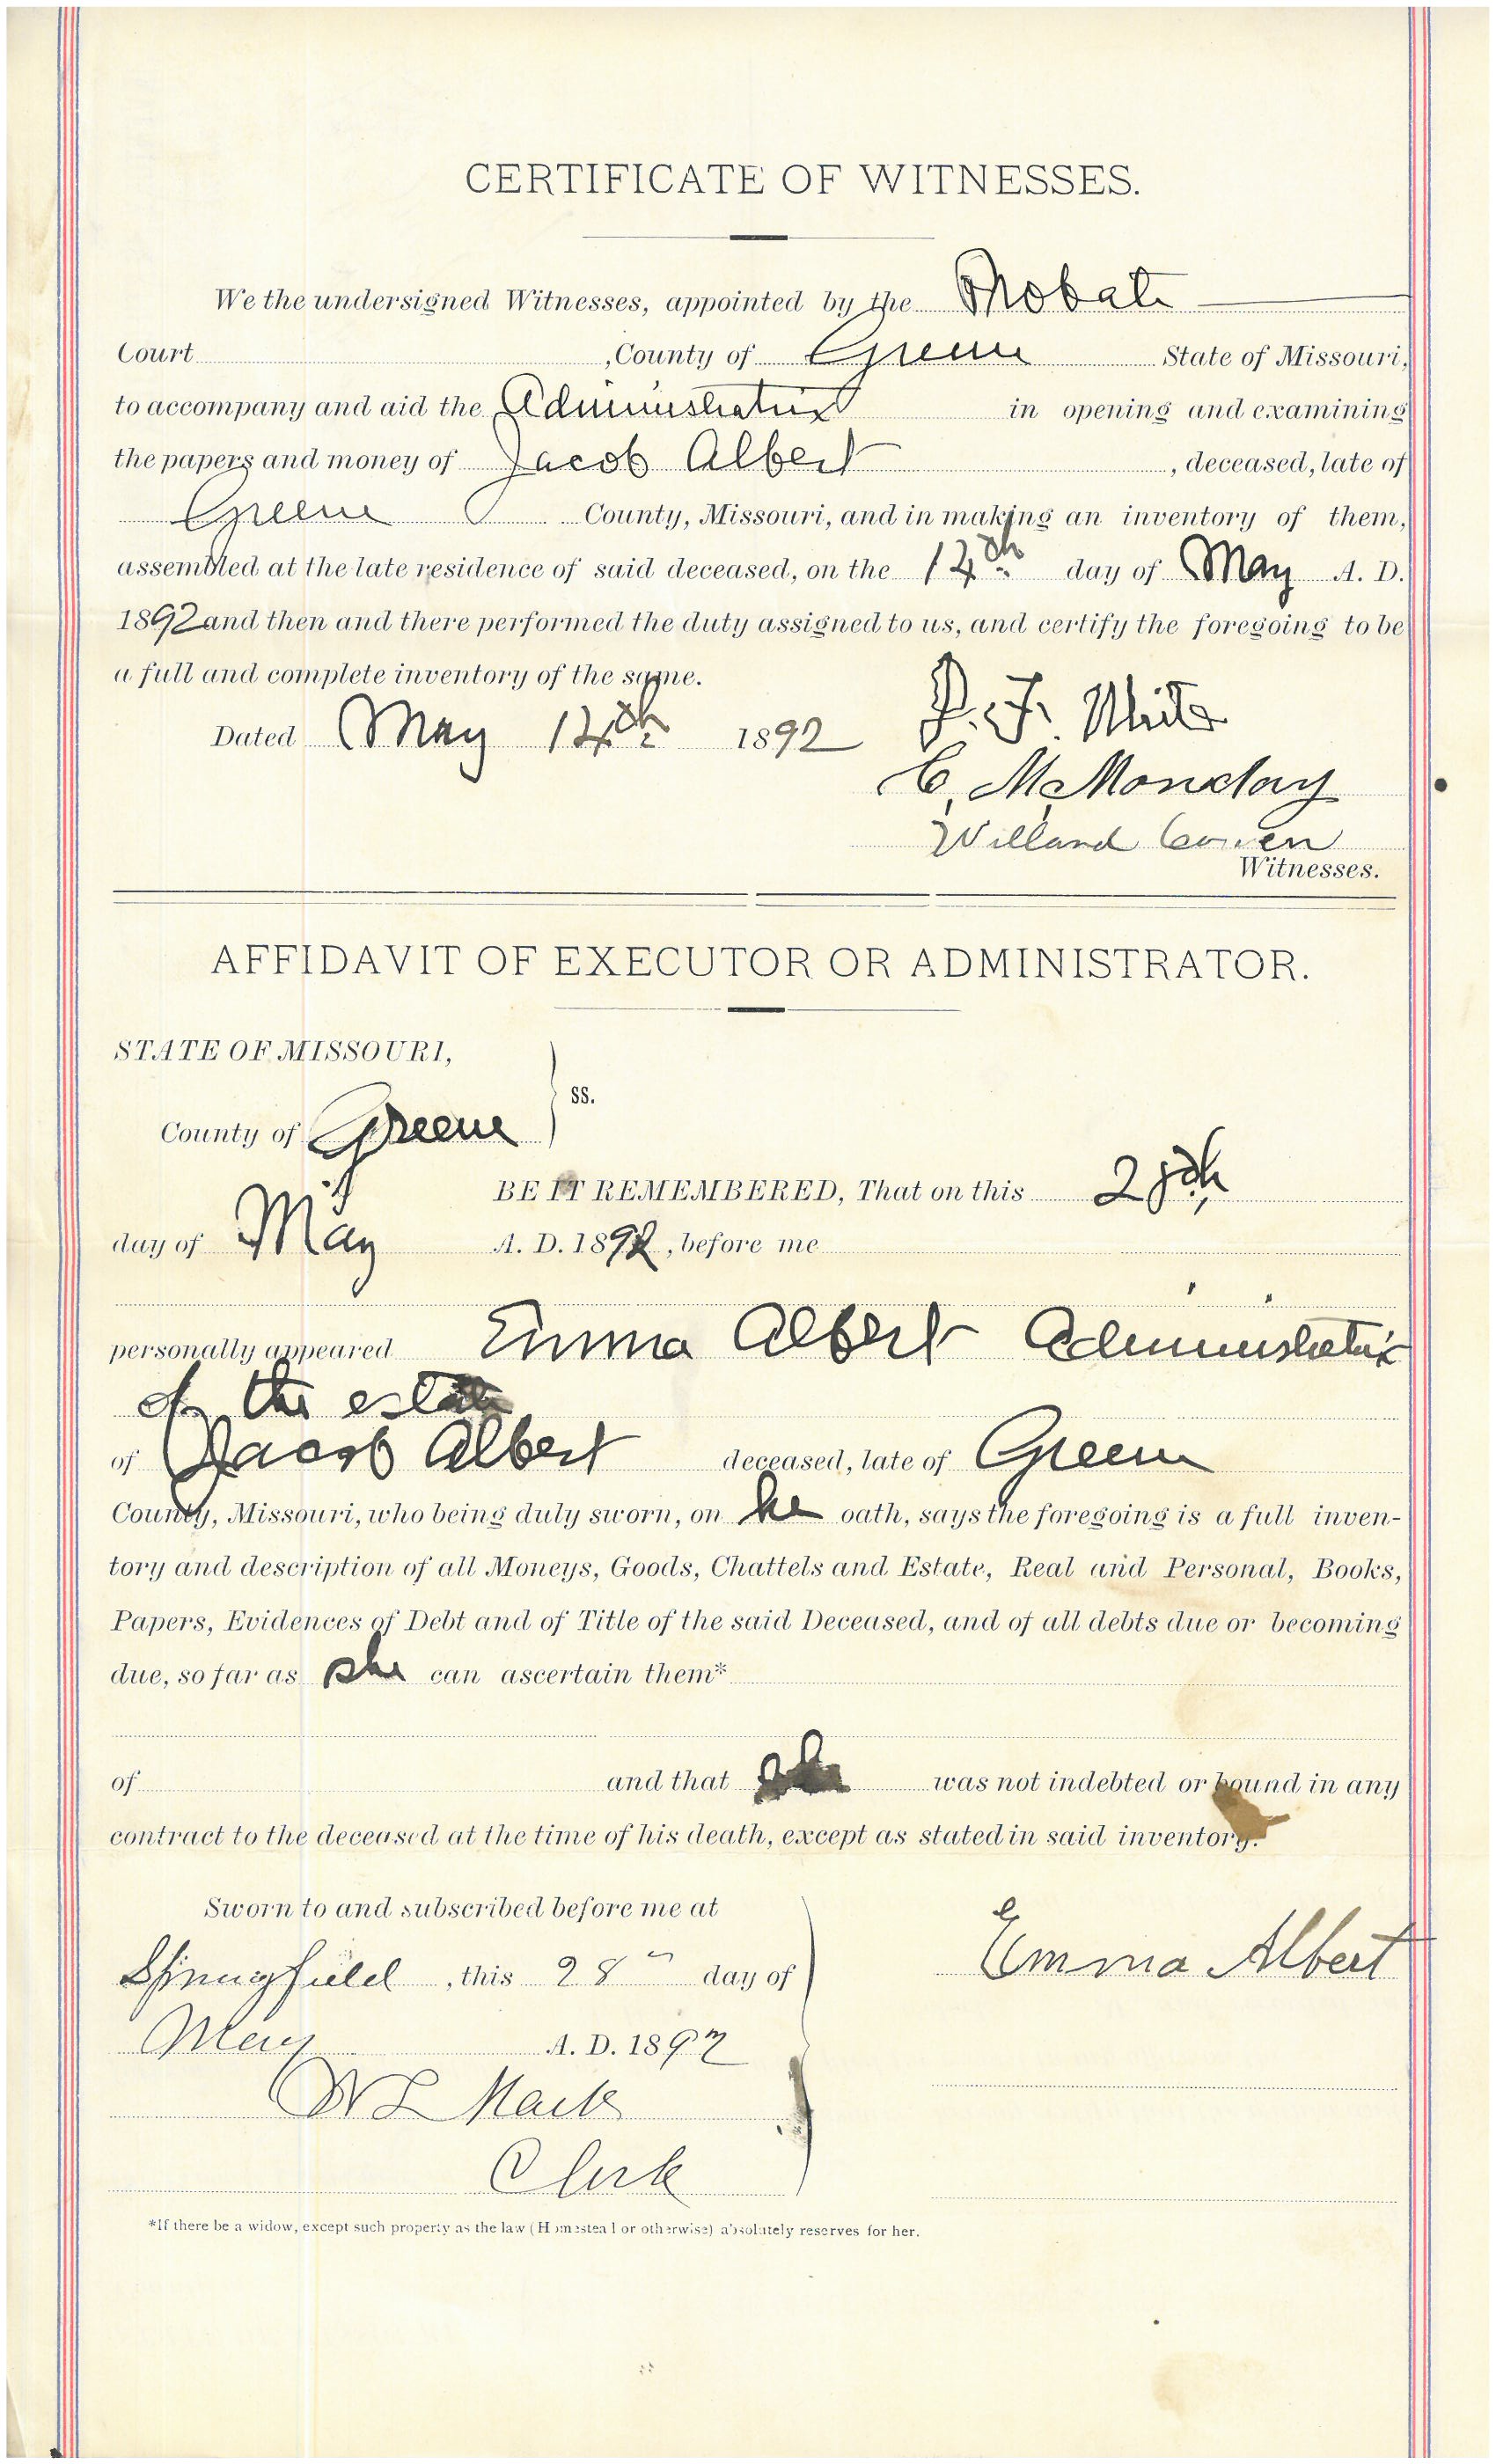 CERTIFICATE OF WITNESSES.
We the undersigned Witnesses, appointed by the Probate
Court , County of Greene State of Missouri,
to accompany and aid the Administratrix in opening and examining
the papers and money of Jacob Albert , deceased, late of
Greene County, Missouri, and in making an inventory of them,
assembled at the late residence of said deceased, on the 14th day of May A. D.
1892 and then and there performed the duty assigned to us, and certify the foregoing to be
a full and complete inventory of the same.
Dated May 14th 1892
C. McMonday
Willard Cowen
Witnesses.
AFFIDAVIT OF EXECUTOR OR ADMINISTRATOR.
STATE OF MISSOURI,
ss.
County of Greene
BE IT REMEMBERED, That on this 28th
day of May A. D. 1892, before me
personally appeared Emma Albert Administratrix
of the estate
of Jacob Albert deceased, late of Greene
County, Missouri, who being duly sworn, on he oath, says the foregoing is a full inven-
tory and description of all Moneys, Goods, Chattels and Estate, Real and Personal, Books,
Papers, Evidences of Debt and of Title of the said Deceased, and of all debts due or becoming
due, so far as she can ascertain them*
of and that she was not indebted or bound in any
contract to the deceased at the time of his death, except as stated in said inventory.
Sworn to and subscribed before me at
Springfield, this 28" day of
Emma Albert
May A. D. 1892
W L Mack
Clerk
*If there be a widow, except such property as the law (Homestead or otherwise) absolutely reserves for her.